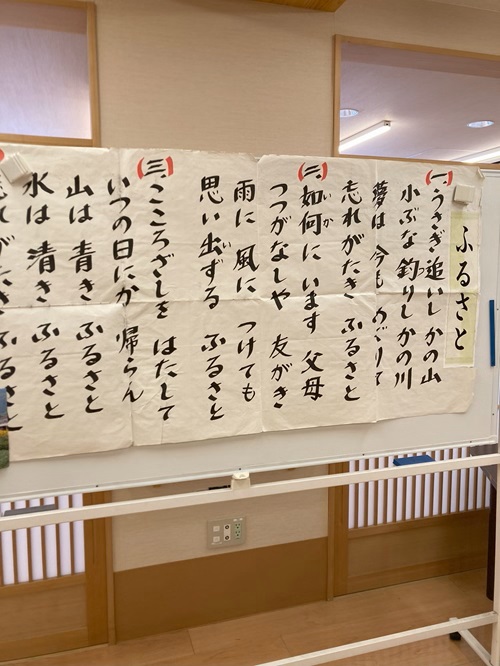 ふるさと
(一)うさぎ追いしかの山
小ぶな釣りしかの川
夢は 今も めぐりて
忘れがたき ふるさと
(二)如何に います 父母
いか
つつがなしや 友がき
雨に 風に つけても
思い出ずる ふるさと
い
(三)こころざしを はたして
いつの日にか 帰らん
山は 青き ふるさと
水は 清き ふるさと
ふるさと